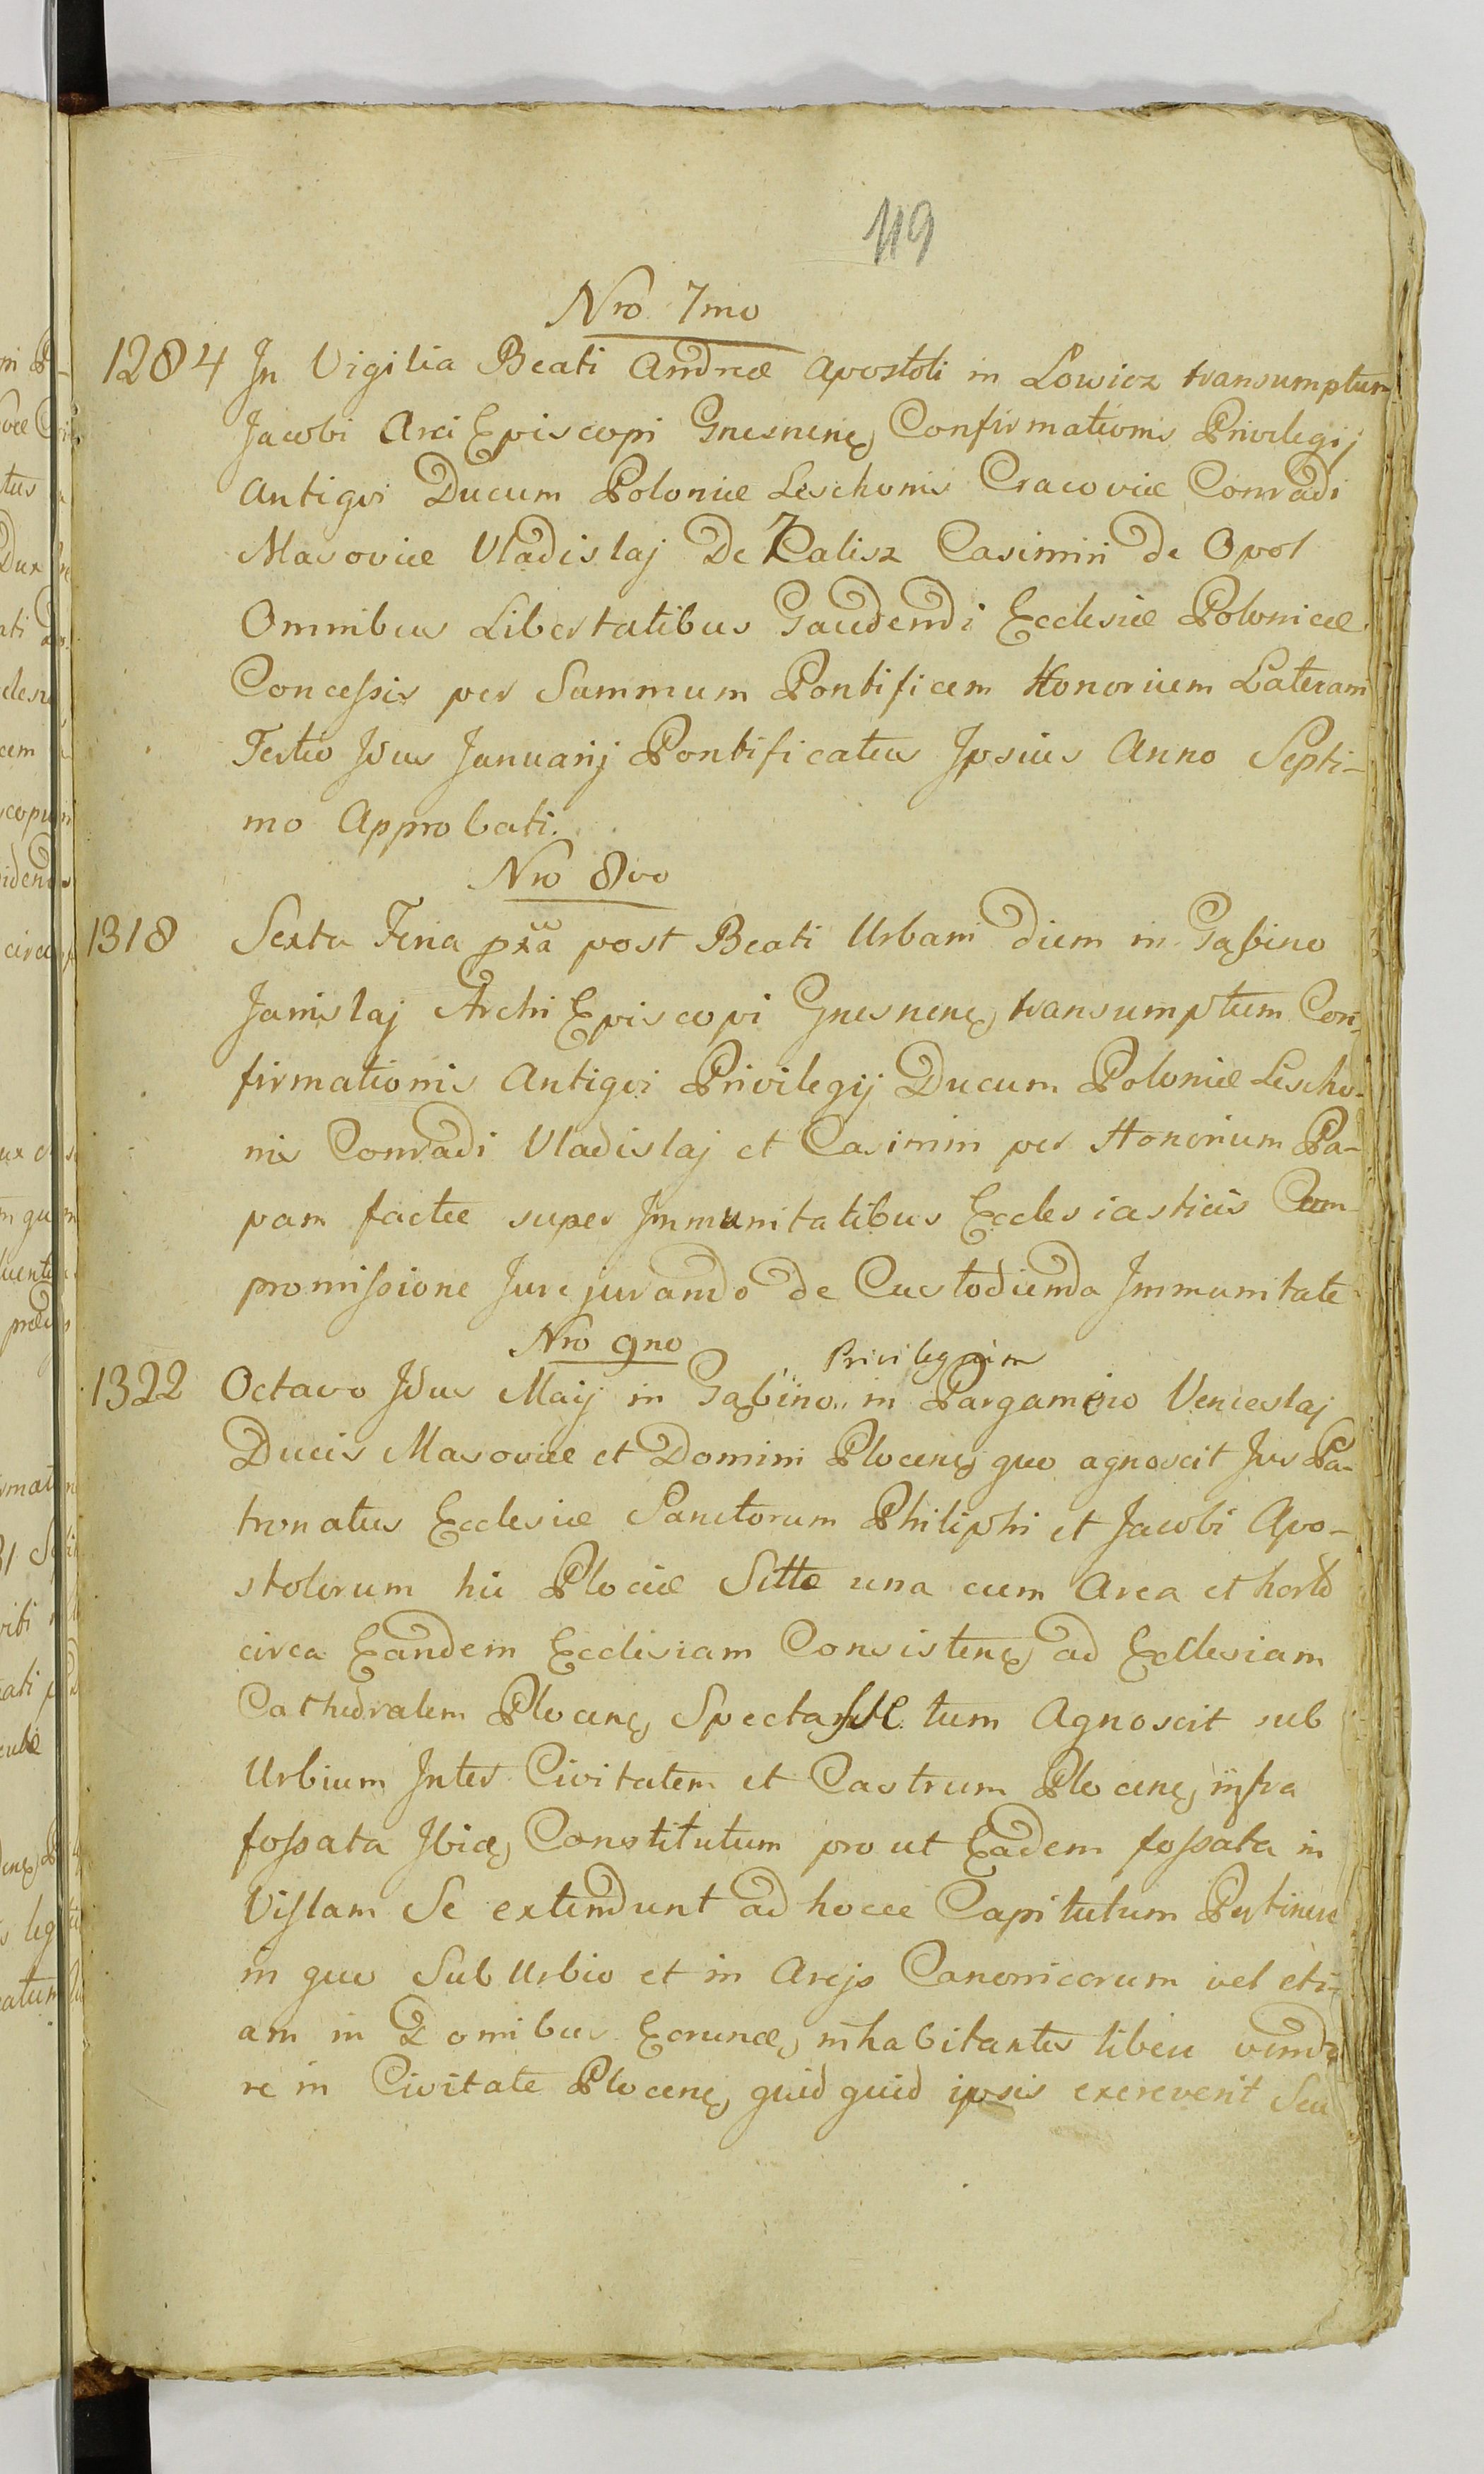 119
Nro 7mo
1284 In Vigilia Beati Andreæ Apostoli in Lowicz transumptum
Jacobi Arci Episcopi Gnesnenę Confirmationis Privilegij
Antiqvi Ducum Poloniæ Leschonis Cracoviæ Conradi
Masoviæ Vladislaj De Kalisz Casimiri de Opol
Omnibus Libertatibus Gaudendi Ecclesiæ Polonicæ
Conceſsis per Summum Pontificem Honorium Laterani
Tertio Idus Januarij Pontificatus Ipsius Anno Septi-
mo Approbati.
Nro 8vo
1318 Sexta Feria pxa post Beati Urbani diem in Gąbino
Janislaj Archi Episcopi Gnesnenę transumptum Con-
firmationis Antiqvi Privilegij Ducum Poloniæ Lescho-
nis Conradi Vladislaj et Casimiri per Honorium Pa-
pam factæ super Immunitatibus Ecclesiasticis Cum
promiſsione Jurejurando de Custodienda Immunitate
Nro 9no
Privilegium
1322 Octavo Idus Maij in Gąbino,, in Pargameno Venceslaj
Ducis Masoviæ et Domini Plocenę quo agnoscit Jus Pa-
tronatus Ecclesiæ Sanctorum Philiphi et Jacobi Apo-
stolorum hic Plociæ Sittæ una cum Area et horto
circa Eandem Ecclesiam Consistenę ad Ecclesiam
Cathedralem Plocenę Spectare tum Agnoscit sub
Urbium Inter Civitatem et Castrum Plocenę infra
foſsata Ibidę Constitutum pro ut Eadem foſsata in
Viſlam Se extendunt ad hocce Capitulum Pertinere
in quo Sub Urbio et in Arejs Canonicorum vel eti-
am in Domibus Eorundę inhabitantes libere vende
re in Civitate Plocenę quid quid ipsis excreverit Seu